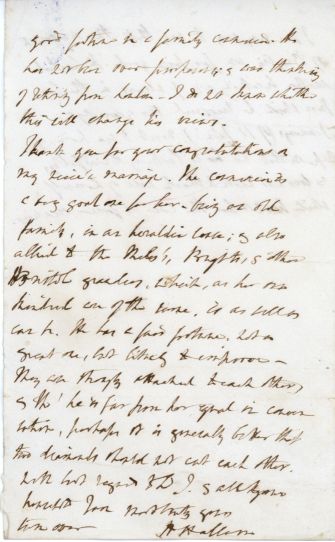 good fortune in a family connexion. He
has not been over prosperous; & was thinking
of retiring from Labor. I do not know whether
this will change his views.
Thank you for your congratulations on
my niece's marriage. The connexion is
a very good one for her being an old
family, in an heraldic sense; & also
allied to the Miles's, Brights, & other
Bristol grandees, which, as her own
kindred are of the same, is as well as
can be. He has a fair fortune, not a
great one, but likely to improve –
They are strongly attached to each other,
& tho' he is far from her equal in conver
sation, perhaps it is generally better that
two diamonds should not cut each other.
With best regards to D. J. & all yours
Most truly yours
turn over H Hallam